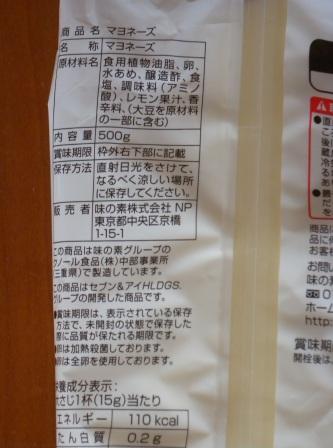 商品名 マヨネーズ
名 称 マヨネーズ
原材料名 食用植物油脂、卵、
水あめ、醸造酢、食
塩、調味料(アミノ
酸)、レモン果汁、香
辛料、(大豆を原材料
の一部に含む)
内 容 量 500g
賞味期限 枠外右下部に記載
保存方法 直射日光をさけて、
なるべく涼しい場所
に保存してください。
販 売 者 味の素株式会社 NP
東京都中央区京橋
1-15-1
この商品は味の素グループの
クノール食品(株)中部事業所
(三重県)で製造しています。
この商品はセブン&アイHLDGS.
グループの開発した商品です。
●賞味期限は、表示されている保存
方法で、未開封の状態で保存した
際に品質が保たれる期限です。
卵は加熱殺菌しております。
卵は全卵を使用しております。
栄養成分表示:
大さじ1杯(15g)当たり
エネルギー 110 kcal
たん白質 0.2 g
商品に
お問い
味の素
ホーム
http:
賞味期
開栓後は、